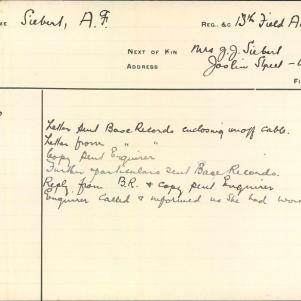 ME Siebert, A.F. REG. &C 13th Field A
NEXT OF KIN Mrs J. J. Siebert
ADDRESS Joslin Street -
FI
Letter sent Base Records enclosing unoff cable.
Letter from " "
Copy sent Enquirer
Further particulars sent Base Records.
Reply from B.R. & copy sent Enquirer
Enquirer called & informed us she had wor